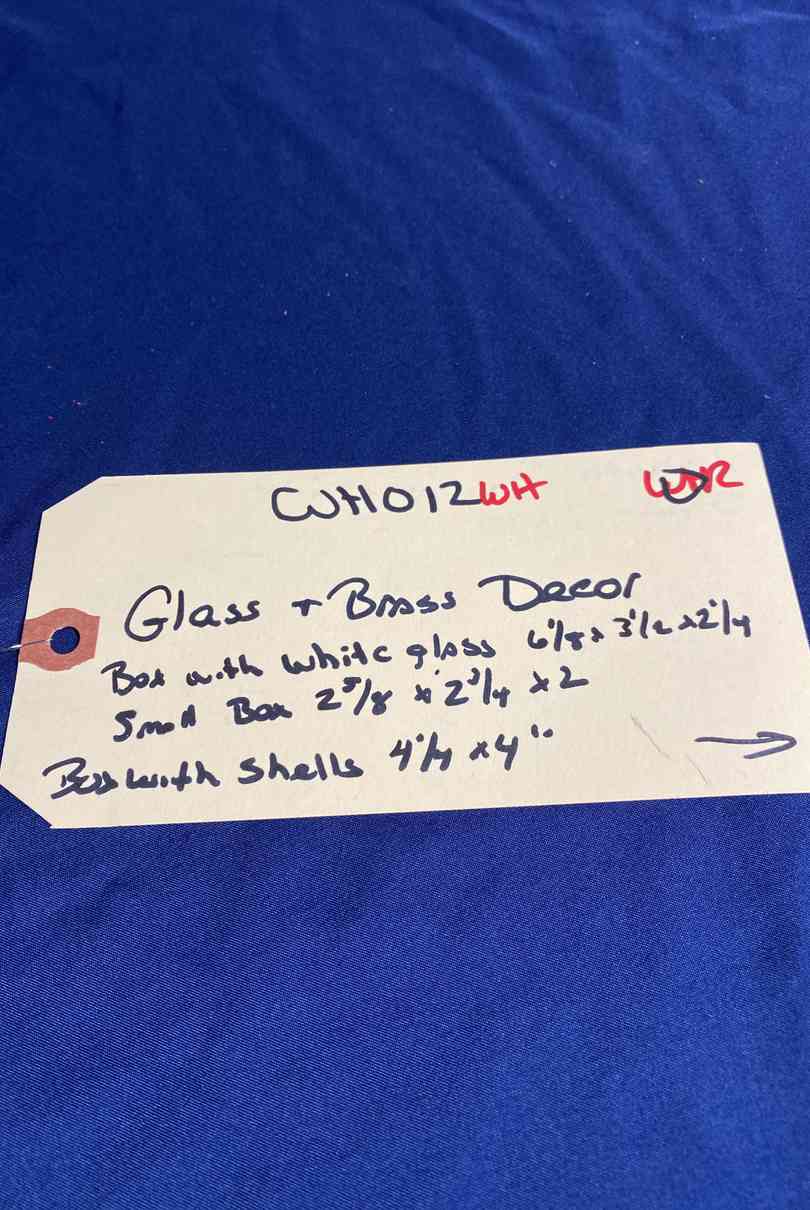 CWH012WH
Glass + Brass Decor
Box with White glass 6 1/8 x 3 1/2 x 2 1/4
Small Box 2 5/8 x 2 3/4 x 2
Box with Shells 4 1/4 x 4"